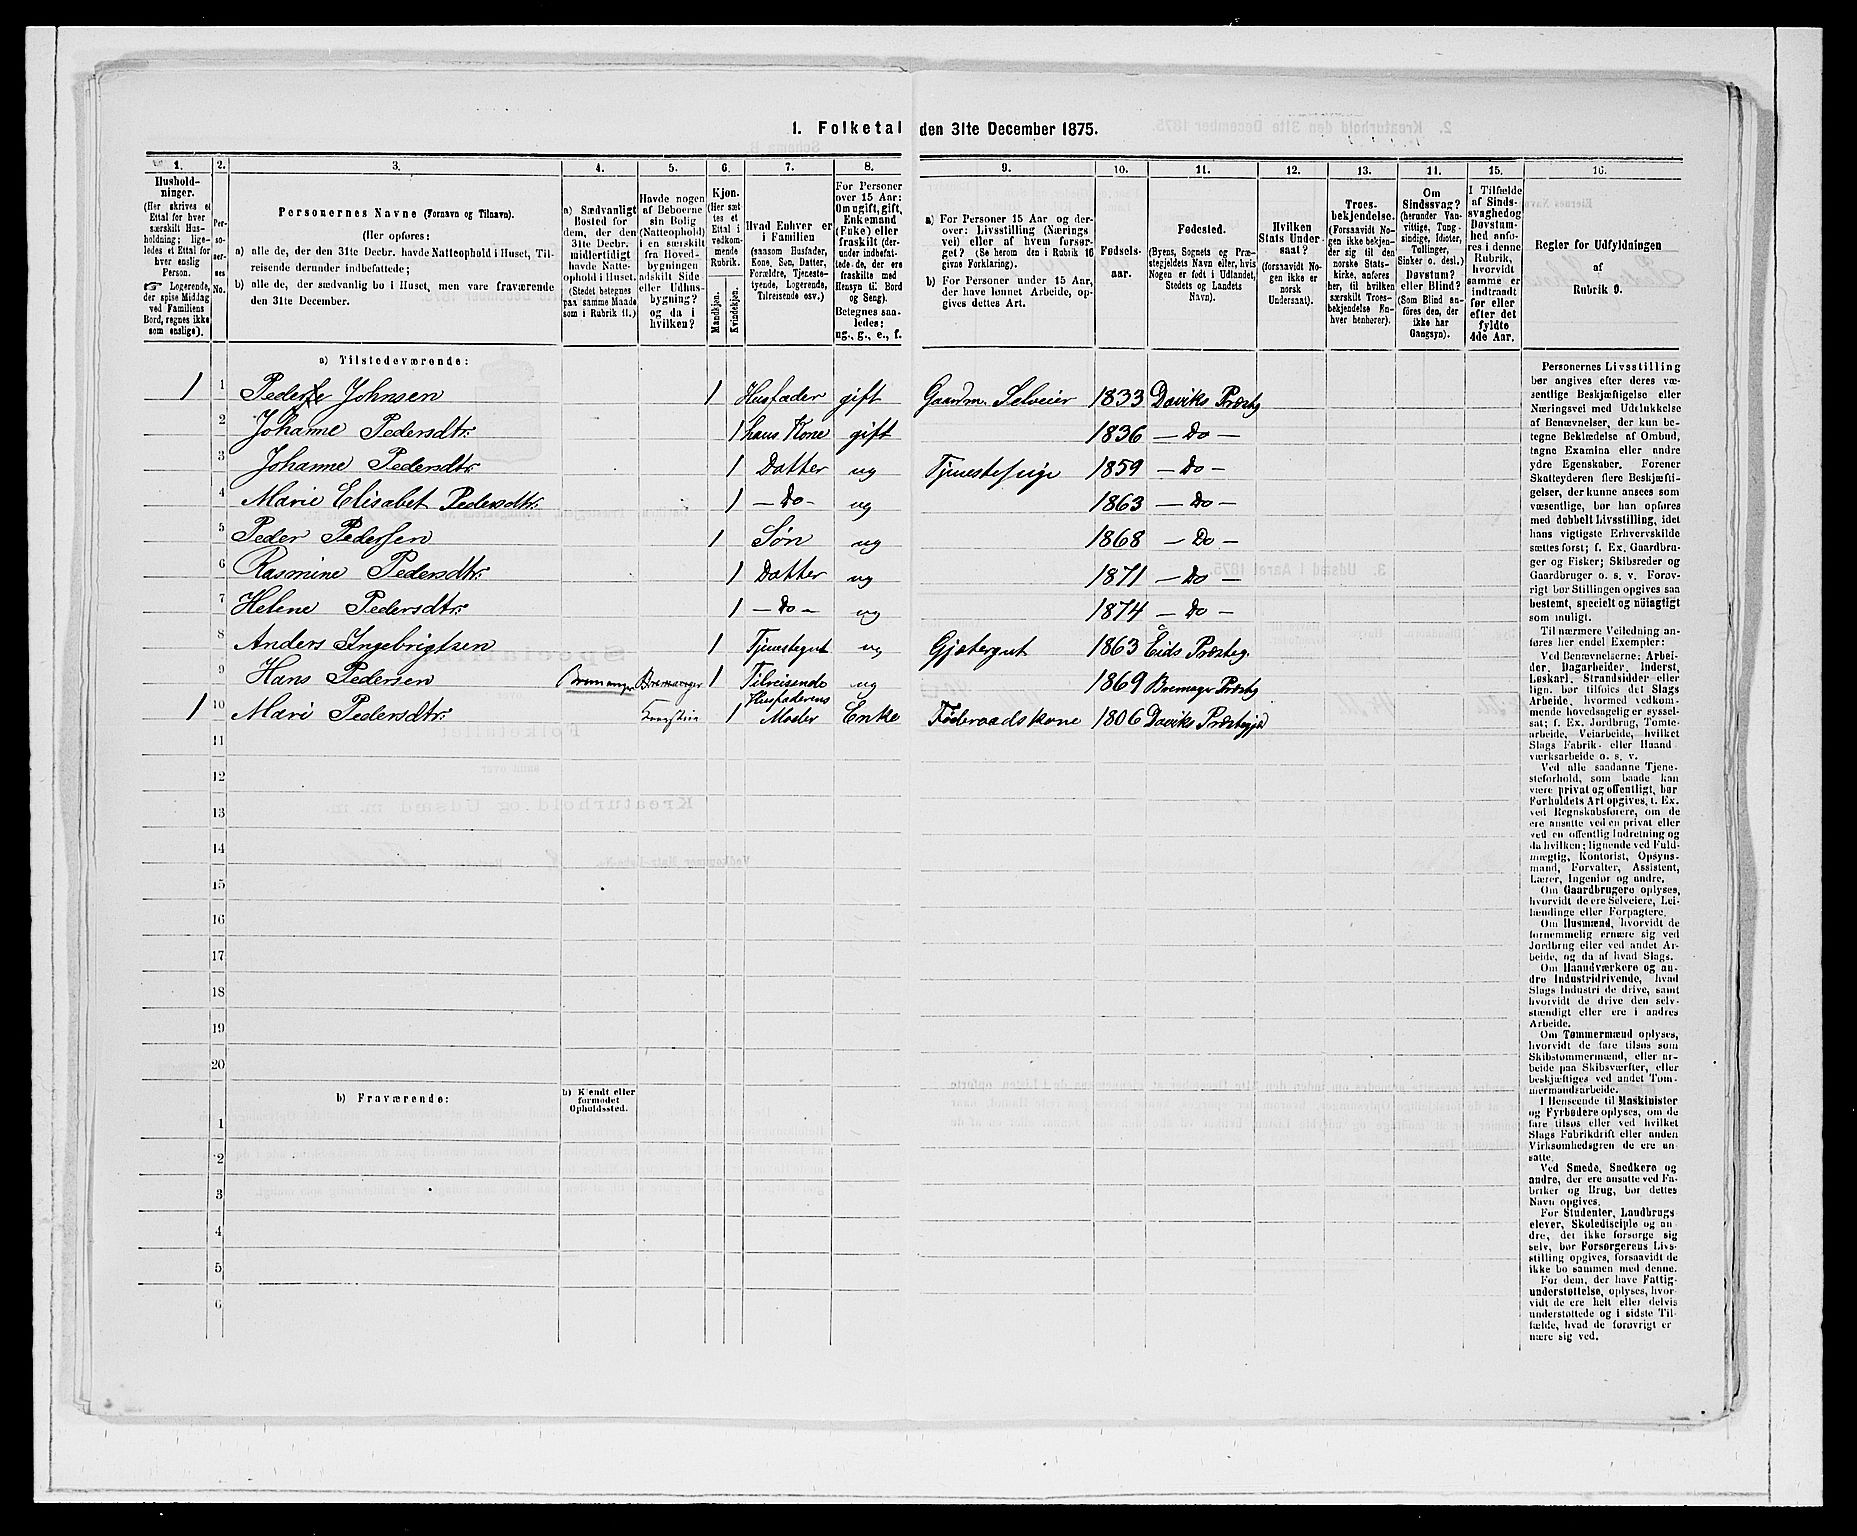 1. Folketal den 31te December 1875.
1. 2. 3. 4. 5. 6. 7. 8. 9. 10. 11. 12. 13. 11. 15. 16.
Hushold-
ninger.
(Her skrives et
Ettal for hver
særskilt Hus-
holdning; lige-
ledes et Ettal for
hver enslig
Person.
☞ Logerende,
der spise Middag
ved Familiens
Bord, regnes ikke
som enslige).
Per-
so-
ner-
nes
No.
Personernes Navne (Fornavn og Tilnavn).
(Her opføres:
a) alle de, der den 31te Decbr. havde Natteophold i Huset, Til-
reisende derunder indbefattede;
b) alle de, der sædvanlig bo i Huset, men vare fraværende
den 31te December.
a) Sædvanligt
Bosted for
dem, der den
31te Decbr.
midlertidigt
havde Natte-
ophold i Huset.
(Stedet betegnes
paa samme Maade
som i Rubrik 11.)
Havde nogen
af Beboerne
sin Bolig
(Natteophold)
i en særskilt
fra Hoved-
bygningen
adskilt Side
eller Udhus-
bygning?
og da i
hvilken?
Kjøn.
(Her sæt
tes et
Ettal i
vedkom-
mende
Rubrik.
Mandkjøn.
Kvindekjøn.
Hvad Enhver er
i Familien
(saasom Husfader,
Kone, Søn, Datter,
Forældre, Tjeneste-
tyende, Logerende,
Tilreisende osv.)
For Personer
over 15 Aar:
Om ugift, gift,
Enkemand
(Enke) eller
fraskilt (der-
under indbefat-
tede de, der ere
fraskilte med
Hensyn til Bord
og Seng).
Betegnes saa-
ledes:
ug., g., e., f.
a) For Personer 15 Aar og der-
over: Livsstilling (Nærings
vei) eller af hvem forsør-
get? (Se herom den i Rubrik 16
givne Forklaring).
b) For Personer under 15 Aar,
der have lønnet Arbeide, op-
gives dettes Art.
Fødsels-
aar.
Fødested.
(Byens, Sognets og Præ-
stegjeldets Navn eller, hvis
Nogen er født i Udlandet,
Stedets og Landets
Navn).
Hvilken
Stats Under-
saat?
(forsaavidt No-
gen ikke er
norsk
Undersaat).
Troes-
bekjendelse.
(Forsaavidt No-
gen ikke bekjen-
der sig til den
norske Stats-
kirke, anføres
her, til hvilken
særskilt Troes-
bekjendelse En-
hver henhører).
Om
Sindssvag?
(herunder Van-
vittige, Tung-
sindige, Idioter,
Tullinger,
Sinker o. desl.)
Døvstum?
eller Blind?
(Som Blind an-
føres den, der
ikke har
Gangsyn).
I Tilfælde
af Sinds-
svaghed og
Døvstum-
hed anfø-
res i denne
Rubrik,
hvorvidt
samme er
indtraadt
før eller
efter det
fyldte
4de Aar.
Regler for Udfyldningen
af
Rubrik 9.
a) Tilstedeværende:
1 1 Peder Johnsen 1 Husfader gift Gaardm. Selveier 1833 Daviks Præstg
2 Johanne Pedersdtr. 1 hans Kone gift 1836 — Do —
3 Johanne Pedersdtr. 1 Datter ug Tjenestepige 1859 — Do —
4 Marie Elisabet Pedersdtr. 1 — Do — ug 1863 — Do —
5 Peder Pedersen 1 Søn ug 1868 — Do —
6 Rasmine Pedersdtr. 1 Datter ug 1871 — Do —
7 Helene Pedersdtr. 1 — Do — ug 1874 — Do —
8 Anders Ingebrigtsen 1 Tjenestegut ug Gjætergut 1863 Eids Præsteg.
9 Hans Pedersen Bremanger Bremanger 1 Tilreisende ug 1869 Bremager Præstg
1 10 Mari Pedersdtr. 1 Husfaderens Moder Enke Føderaadskone 1806 Daviks Præstegjd
11
12
13
14
15
16
17
18
19
20
b) Fraværende:
b) Kjendt eller
formodet
Opholdssted.
1
2
3
4
5
6
Personernes Livsstilling
bør angives efter deres væ-
sentlige Beskjæftigelse eller
Næringsvei med Udelukkelse
af Benævnelser, der kun be-
tegne Beklædelse af Ombud,
tagne Examina eller andre
ydre Egenskaber. Forener
Skatteyderen flere Beskjæfti-
gelser, der kunne ansees som
væsentlige, bør han opføres
med dobbelt Livsstilling, idet
hans vigtigste Erhvervskilde
sættes først; f. Ex. Gaardbru-
ger og Fisker; Skibsreder og
Gaardbruger o. s. v. Forøv-
rigt bør Stillingen opgives saa
bestemt, specielt og nøiagtigt
som muligt.
Til nærmere Veiledning an-
føres her endel Exempler:
Ved Benævnelserne: Arbei-
der, Dagarbeider, Inderst,
Løskarl, Strandsidder eller
lign. bør tilføies det Slags
Arbeide, hvormed vedkom-
mende hovedsagelig er syssel-
sat; f. Ex. Jordbrug, Tomte-
arbeide, Veiarbeide, hvilket
Slags Fabrik- eller Haand
værksarbeide o. s. v.
Ved alle saadanne Tjene-
steforhold, som baade kan
være privat og offentligt, bør
Forholdets Art opgives, t. Ex.
ved Regnskabsførere, om de
ere ansatte ved en privat eller
ved en offentlig Indretning og
da hvilken; lignende ved Fuld-
mægtig, Kontorist, Opsyns-
mand, Forvalter, Assistent,
Lærer, Ingeniør og andre.
Om Gaardbrugere oplyses,
hvorvidt de ere Selveiere, Lei-
lændinge eller Forpagtere.
Om Husmænd, hvorvidt de
fornemmelig ernære sig ved
Jordbrug eller ved andet Ar-
beide, og da af hvad Slags.
Om Haandværkere og an-
dre Industridrivende, hvad
Slags Industri de drive, samt
hvorvidt de drive den selv-
stændigt eller ere i andres
Arbeide.
Om Tømmermænd oplyses,
hvorvidt de fare tilsøs som
Skibstømmermænd, eller ar-
beide paa Skibsværfter, eller
beskjæftiges ved andet Tøm-
mermandsarbeide.
I Henseende til Maskinister
og Fyrbødere oplyses, om de
fare tilsøs eller ved hvilket
Slags Fabrikdrift eller anden
Virksomhedsgren de ere an-
satte.
Ved Smede, Snedkere og
andre, der ere ansatte ved Fa-
briker og Brug, bør dettes
Navn opgives.
For Studenter, Landbrugs
elever, Skoledisciple og an-
dre, der ikke forsørge sig
selv, bør Forsørgerens Livs-
stilling opgives, forsaavidt de
ikke bo sammen med denne.
For dem, der have Fattig-
understøttelse, oplyses, hvor-
vidt de ere helt eller delvis
understøttede og i sidste Til-
fælde, hvad de forøvrigt er
nære sig ved.